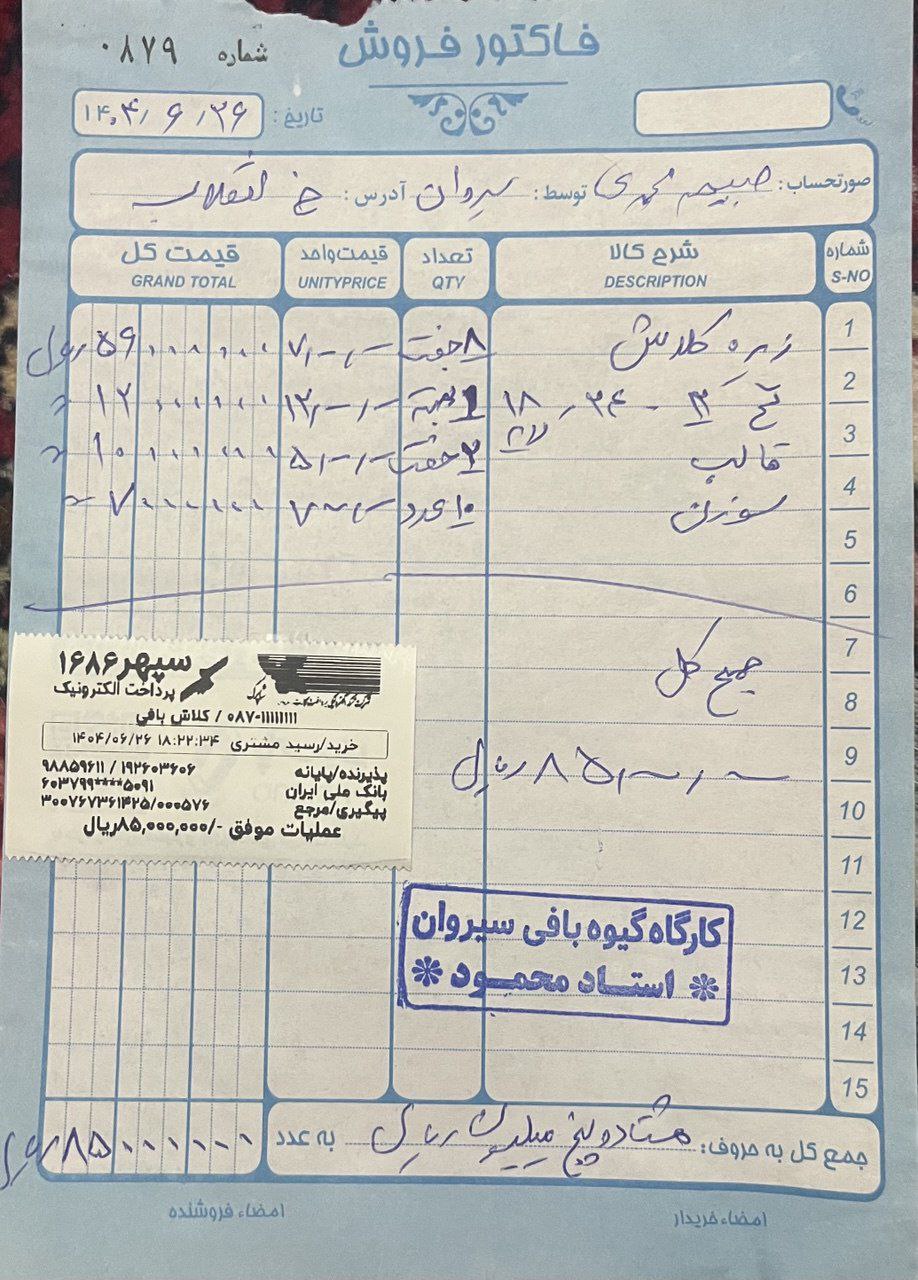 فاکتور فروش
شماره ۰۸۷۹
تاریخ: ۱۴۰۴/۶/۲۶
صورتحساب: محمدی توسط: سیروان آدرس: خ انقلاب
شماره شرح کالا تعداد قیمت واحد قیمت کل
S-NO DESCRIPTION QTY UNITYPRICE GRAND TOTAL
1 زیره کلاش ۸ جفت ۷/۰۰۰/۰۰۰ ۵۶۰۰۰۰۰۰ ریال
2 نخ ۳ - ۳۴ - ۱۸ 1 بسته ۱۲/۰۰۰/۰۰۰ ۱۲۰۰۰۰۰۰ "
3 قالب ۲ جفت ۵/۰۰۰/۰۰۰ ۱۰۰۰۰۰۰۰ "
4 سوزن ۱۰ عدد ۷۰۰/۰۰۰ ۷۰۰۰۰۰۰ "
5
6
7 جمع کل
8
9 ۸۵/۰۰۰/۰۰۰ ریال
10
11
12
13
14
15
سپهر ۱۶۸۶
پرداخت الکترونیک
۰۸۷-۱۱۱۱۱۱۱۱ / کلاش بافی
خرید/رسید مشتری ۱۴۰۴/۰۶/۲۶ ۱۸:۲۲:۳۴
پذیرنده/پایانه ۹۸۸۵۹۶۱۱ / ۱۹۲۶۰۳۶۰۶
بانک ملی ایران ۶۰۳۷۹۹****۵۰۹۱
پیگیری/مرجع ۳۰۰۷۶۷۳۶۱۴۲۵/۰۰۰۵۷۶
عملیات موفق -/۸۵,۰۰۰,۰۰۰ریال
کارگاه گیوه بافی سیروان
* استاد محمود *
جمع کل به حروف: هشتاد و پنج میلیون ریال به عدد ۸۵۰۰۰۰۰۰ ریال
امضاء خریدار امضاء فروشنده